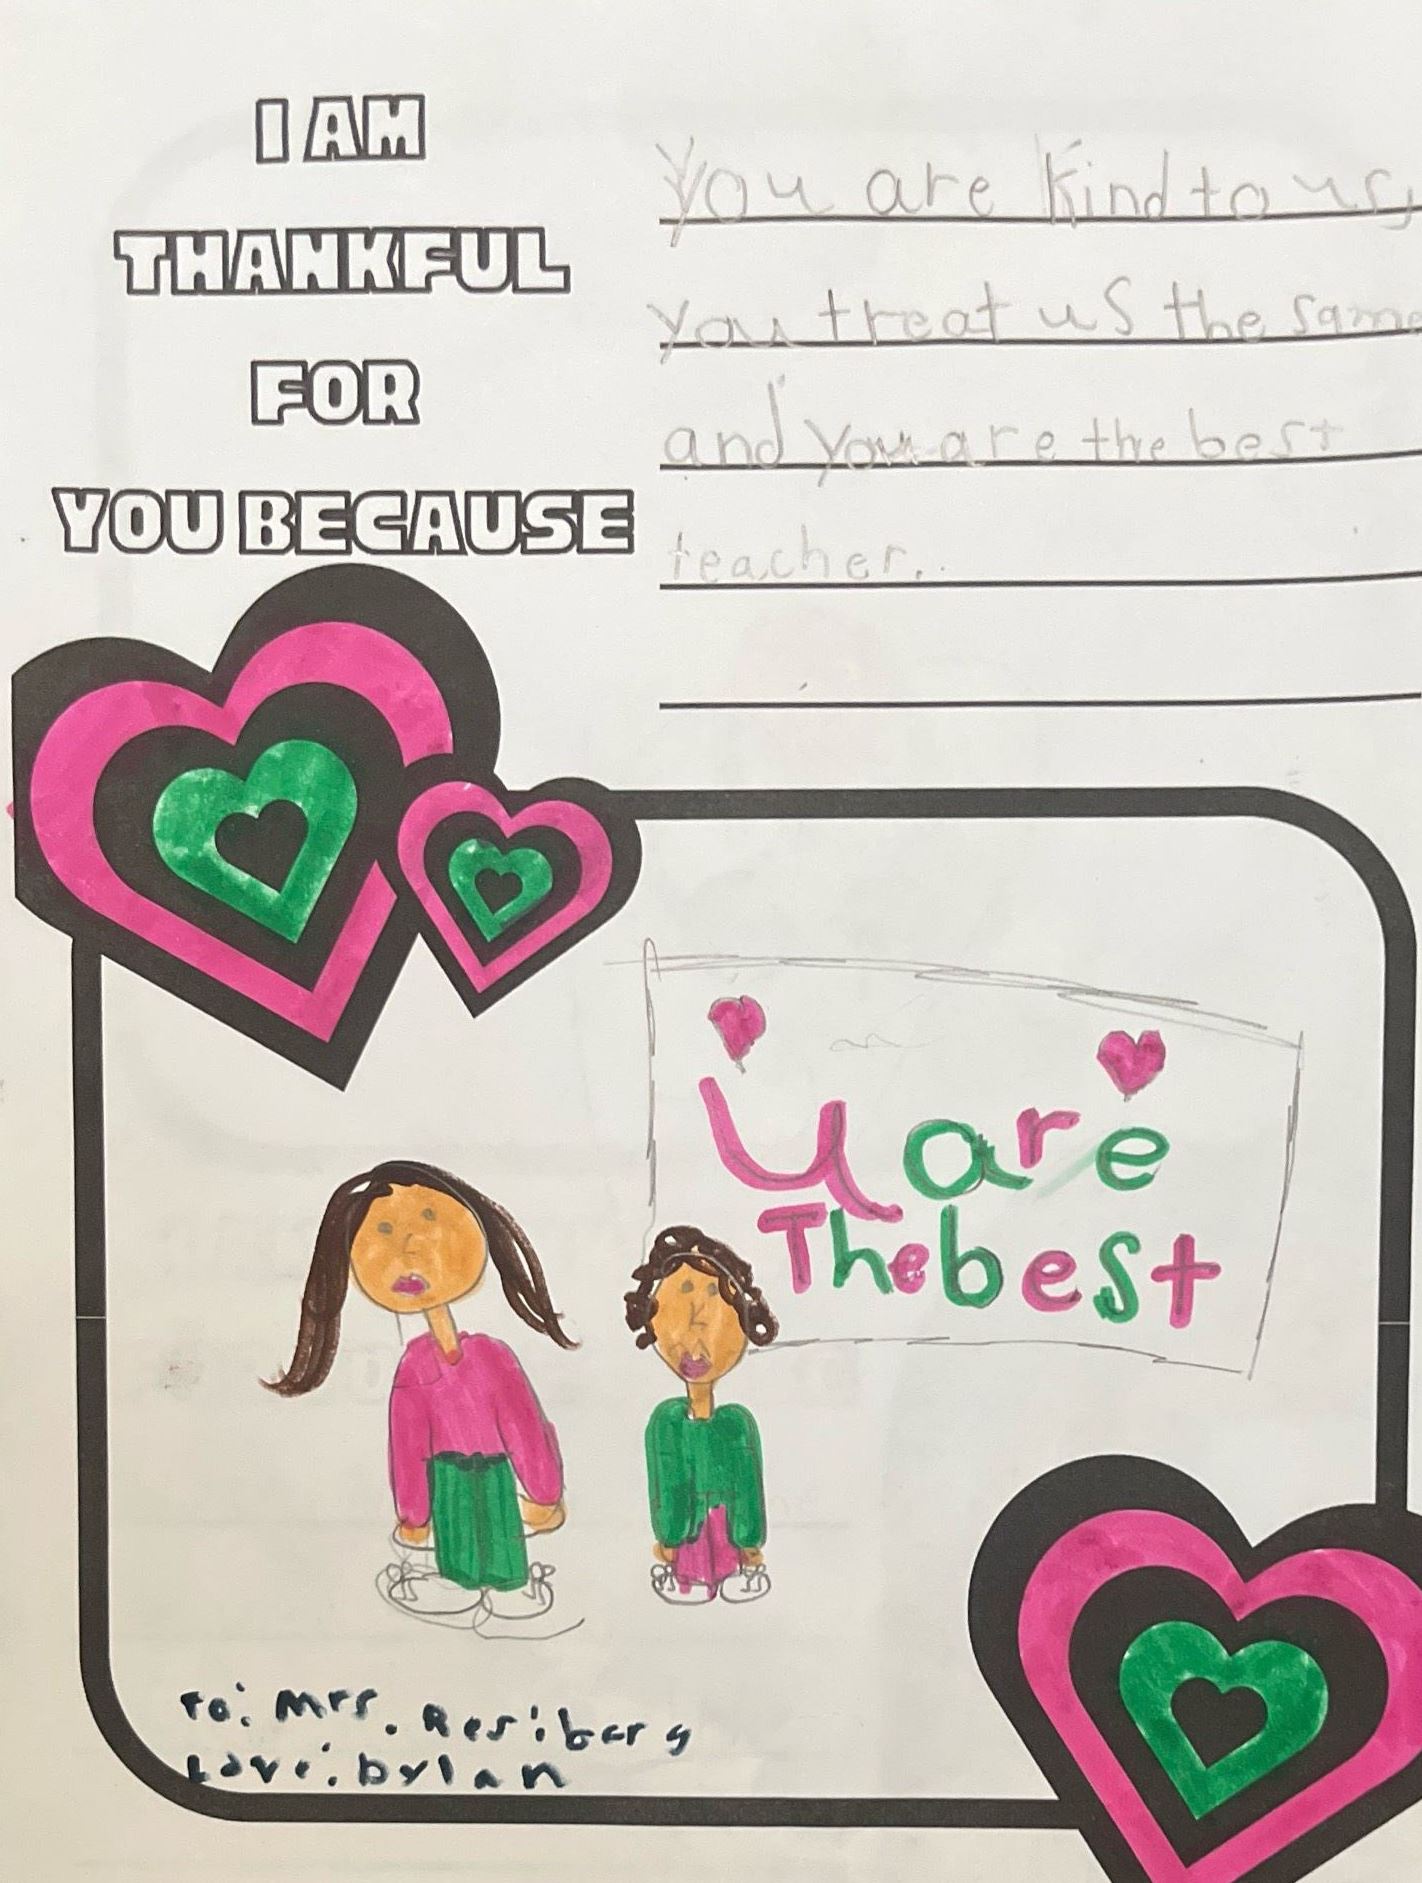 I AM
THANKFUL
FOR
YOU BECAUSE
You are kind to us,
you treat us the same
and you are the best
teacher.
U are
The best
To: Mrs. Resiberg
Love: Dylan